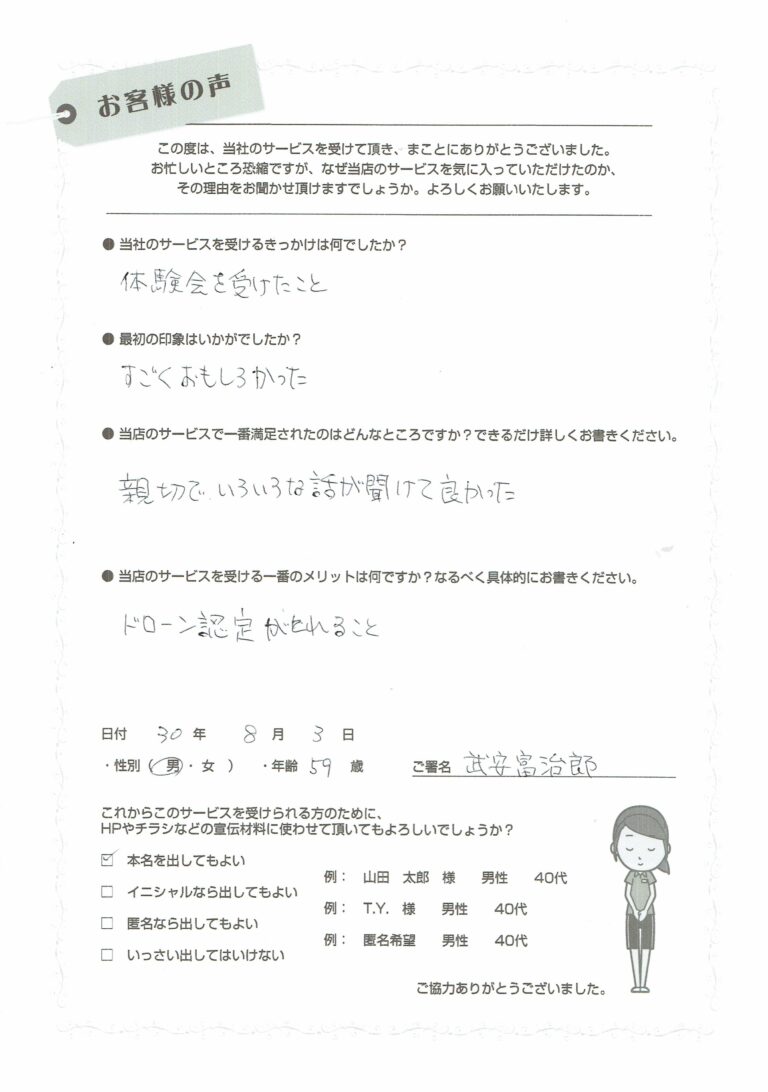 お客様の声
この度は、当社のサービスを受けて頂き、まことにありがとうございました。
お忙しいところ恐縮ですが、なぜ当店のサービスを気に入っていただけたのか、
その理由をお聞かせ頂けますでしょうか。よろしくお願いいたします。
● 当社のサービスを受けるきっかけは何でしたか？
体験会を受けたこと
● 最初の印象はいかがでしたか？
すごくおもしろかった
● 当店のサービスで一番満足されたのはどんなところですか？できるだけ詳しくお書きください。
親切で、いろいろな話が聞けて良かった
● 当店のサービスを受ける一番のメリットは何ですか？なるべく具体的にお書きください。
ドローン認定がとれること
日付 30 年 8 月 3 日
・性別（ 男 ・ 女 ） ・年齢 59 歳 ご署名 武安富治郎
これからこのサービスを受けられる方のために、
HPやチラシなどの宣伝材料に使わせて頂いてもよろしいでしょうか？
☑ 本名を出してもよい 例： 山田 太郎 様 男性 40代
□ イニシャルなら出してもよい 例： T.Y. 様 男性 40代
□ 匿名なら出してもよい 例： 匿名希望 男性 40代
□ いっさい出してはいけない
ご協力ありがとうございました。